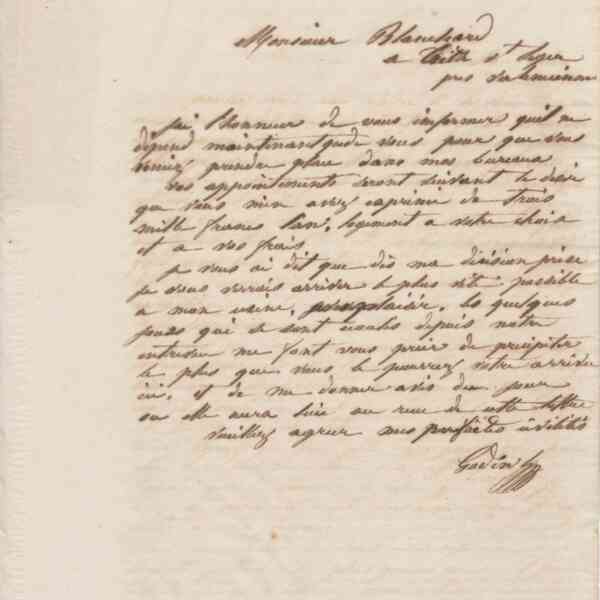 Monsieur Blanchard
a Trith St Leger
pres Valenciennes
Jai l'honneur de vous informer quil ne
depend maintenant que de vous pour que vous
veniez prendre place dans mes bureaux
Vos appointements seront suivant le desir
que vous m'en avez exprimé de trois
mille francs l'an, logement a votre choix
et a vos frais
Je vous ai dit que dès ma décision prise
je vous verrais arriver le plus vite possible
a mon usine, avec plaisir. Les quelques
jours qui se sont écoulés depuis notre
entrevue me font vous prier de precipiter
le plus que vous le pourrez votre arrivée
ici, et de me donner avis du jour
ou elle aura lieu au reçu de cette lettre
Veuillez agreer mes parfaites civilités
Godin